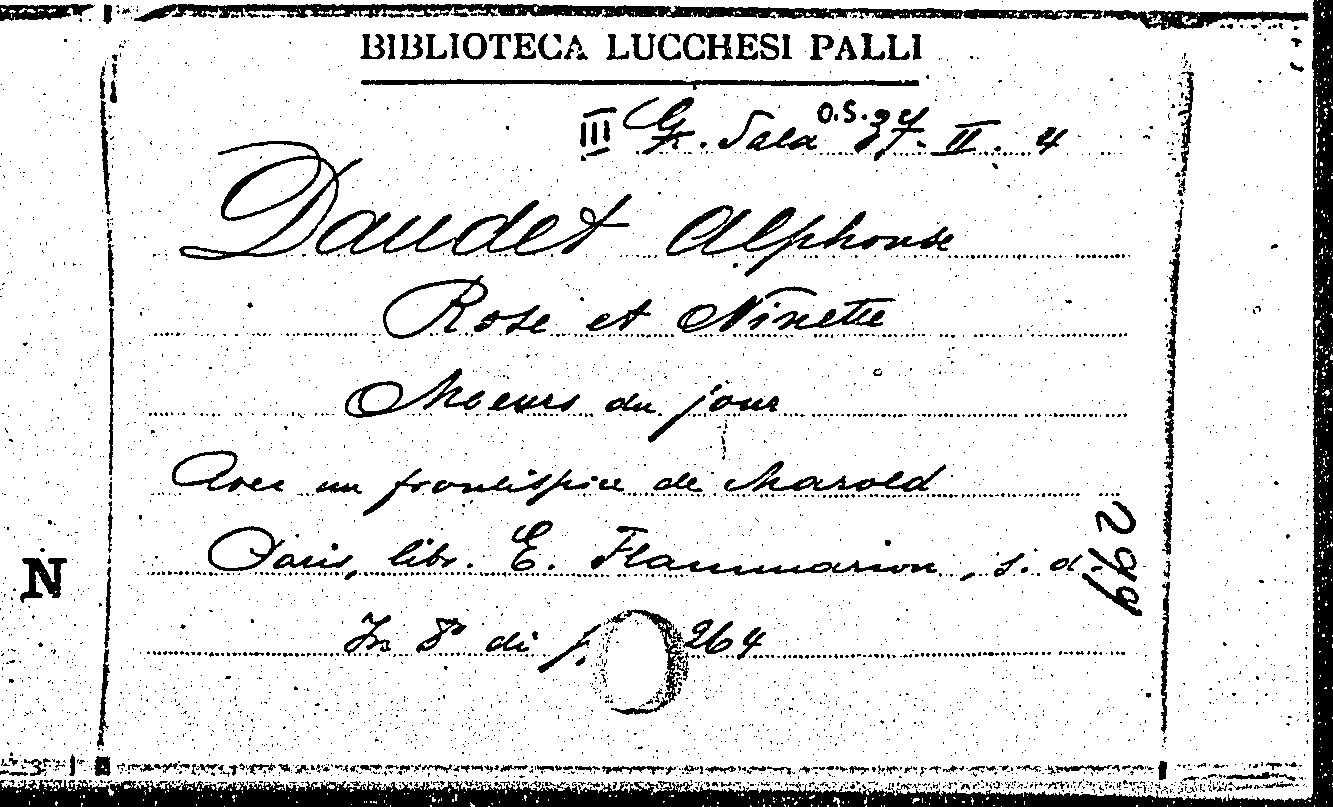 BIBLIOTECA LUCCHESI PALLI
O.S.
III Gr. Sala 27. II. 4
Daudet Alphonse
Rose et Ninette
Moeurs du jour
Avec un frontispice de Marold
Paris, libr. E. Flammarion, s. d.
In 8° di p. 264
N
299